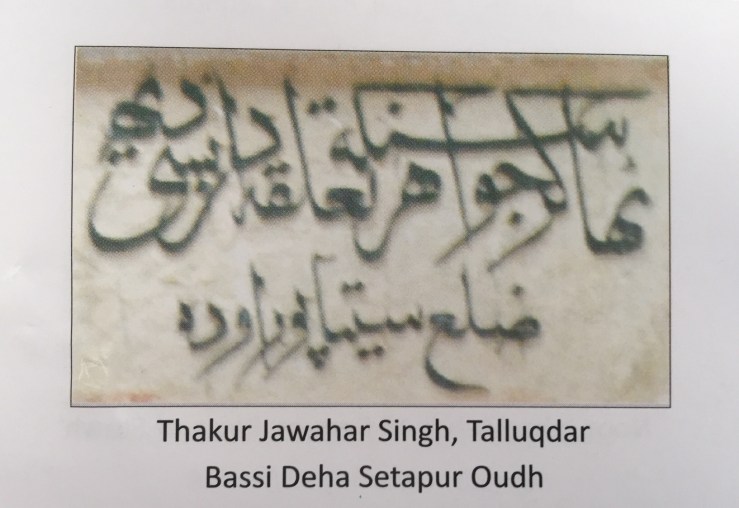 ٹھاکر جواهر سنگه تعلقہ دار بسی ديہہ
ضلع سیتاپور اودہ
Thakur Jawahar Singh, Talluqdar
Bassi Deha Setapur Oudh